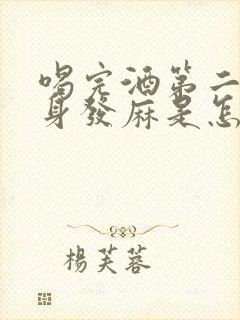 喝完酒第二
身發麻是怎
楊芙蓉